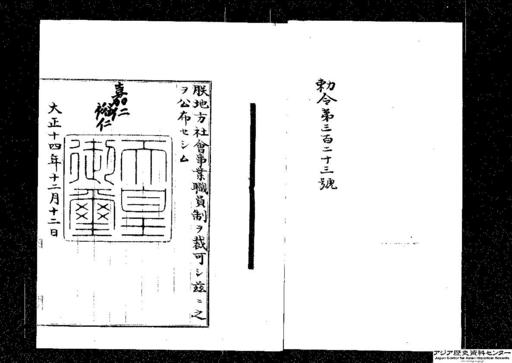 勅令第三百二十三號
朕地方社會事業職員制ヲ裁可シ玆ニ之
ヲ公布セシム
嘉仁
裕仁
天皇
御璽
大正十四年十二月十二日
アジア歴史資料センター
Japan Center for Asian Historical Records